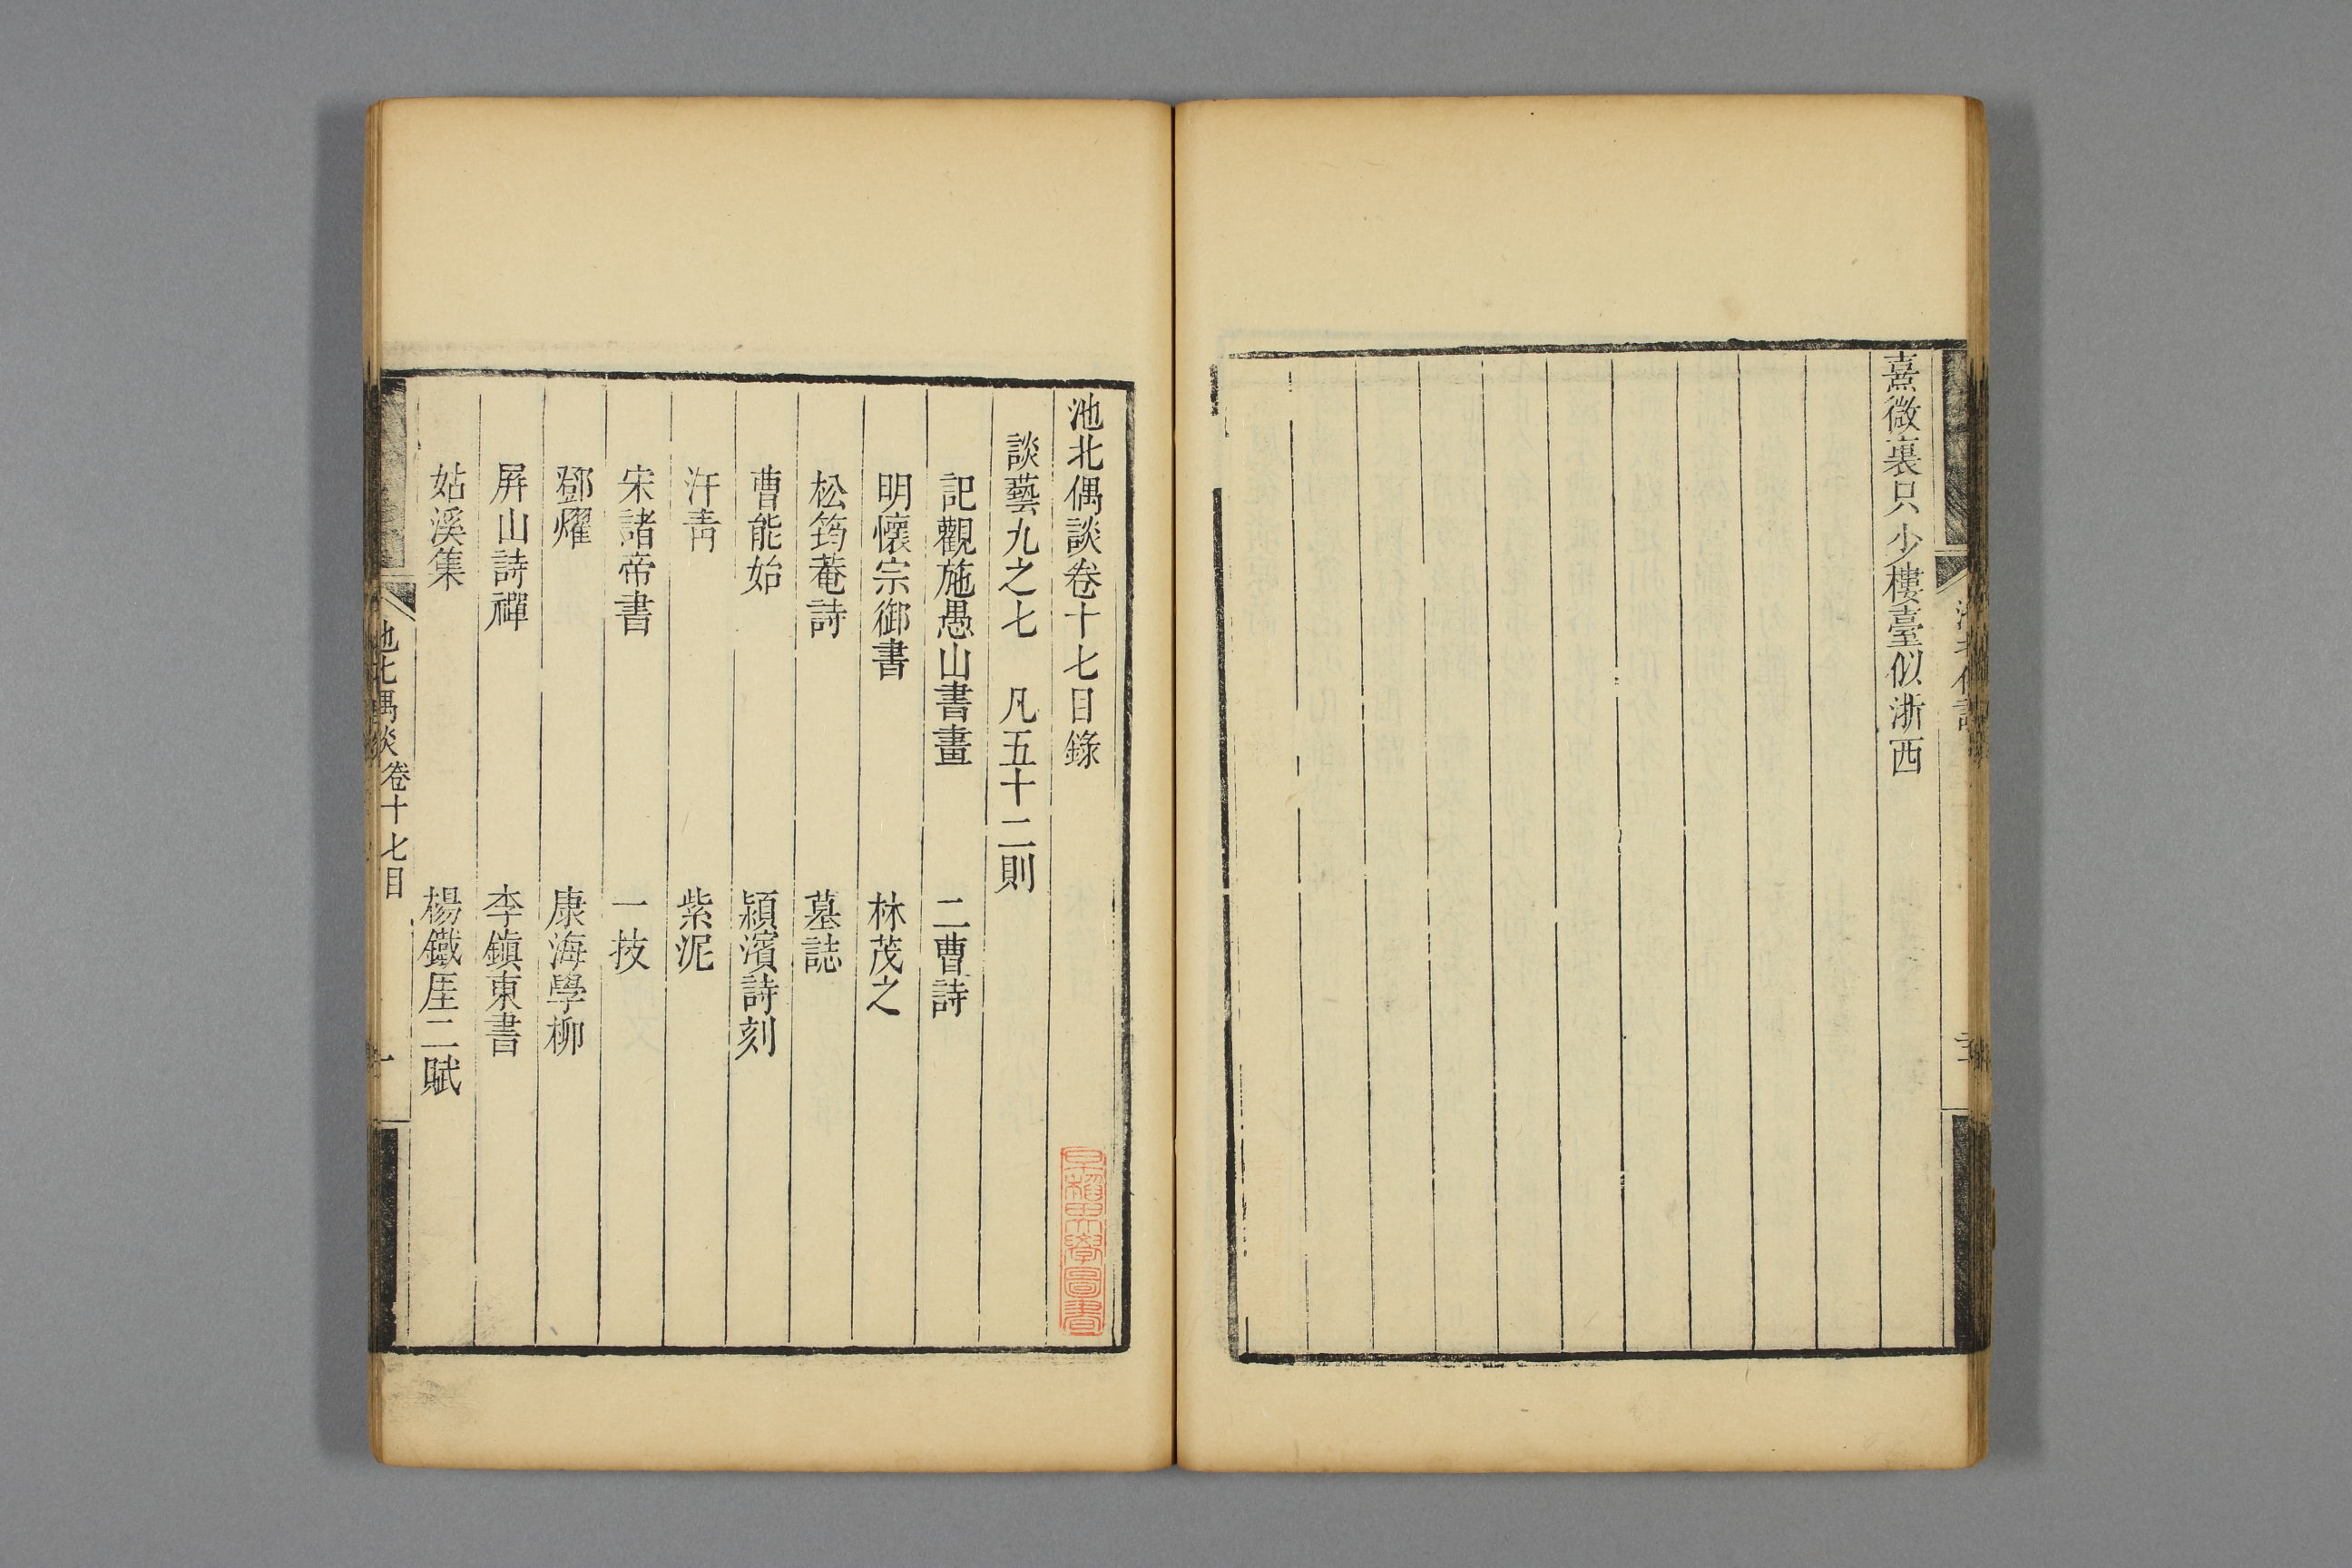 熹微裏只少樓臺似浙西
池北偶談卷十七目錄
談藝九之七 凡五十二則
記觀施愚山書畫 二曹詩
明懷宗御書 林茂之
松筠菴詩 墓誌
曹能始 潁濱詩刻
汗靑 紫泥
宋諸帝書 一技
鄧燿 康海學柳
屏山詩禪 李鎮東書
姑溪集 楊鐵厓二賦
池北偶談 卷十七目 一
早稻田大學圖書